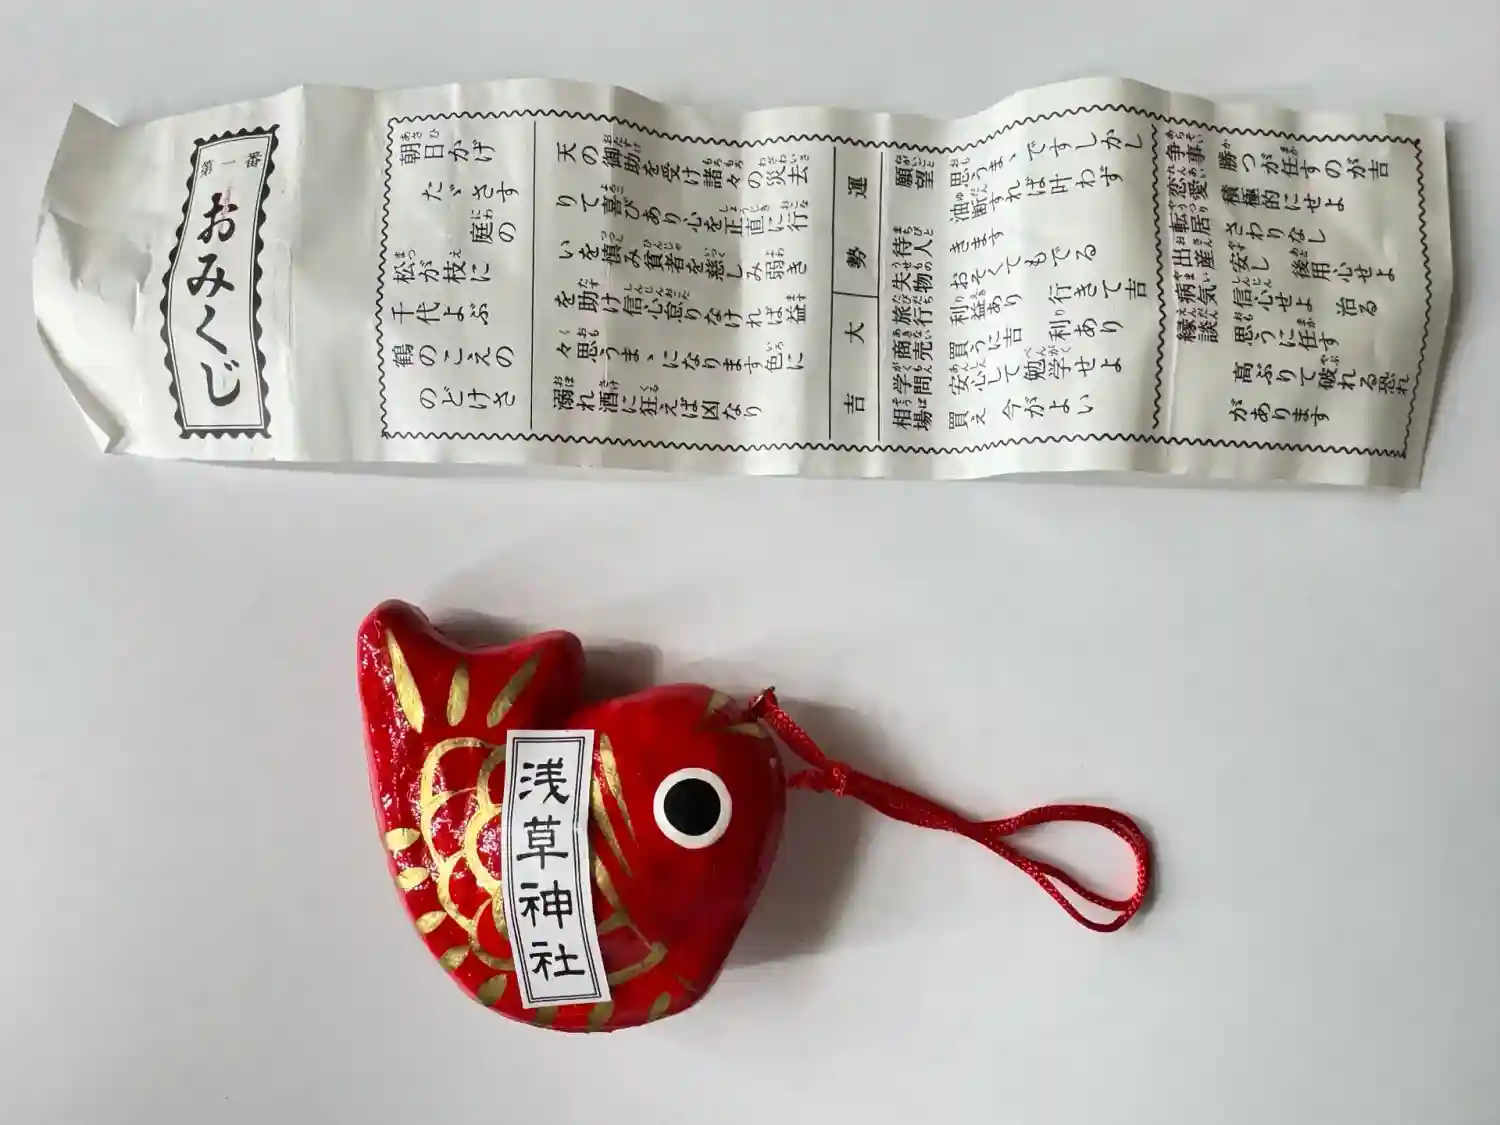 第一番
おみくじ
朝日かげ
たゞさす
庭の
松が枝に
千代よぶ
鶴のこえの
のどけさ
天の御助を受け諸々の災去
りて喜びあり心を正直に行
いを慎み貧者を慈しみ弱き
を助け信心怠りなければ益
々思うまゝになります色に
溺れ酒に狂えば凶なり
運勢
大吉
願望 思うまゝですしかし
油断すれば叶わず
待人 きます
失物 おそくてもでる
旅行 利益あり行きて吉
商売 買うに吉利あり
学問 安心して勉学せよ
相場 買え今がよい
争事 勝つが任すのが吉
恋愛 積極的にせよ
転居 さわりなし
出産 安し後用心せよ
病気 信心せよ治る
縁談 思うに任す
高ぶりて破れる恐れ
があります
浅草神社